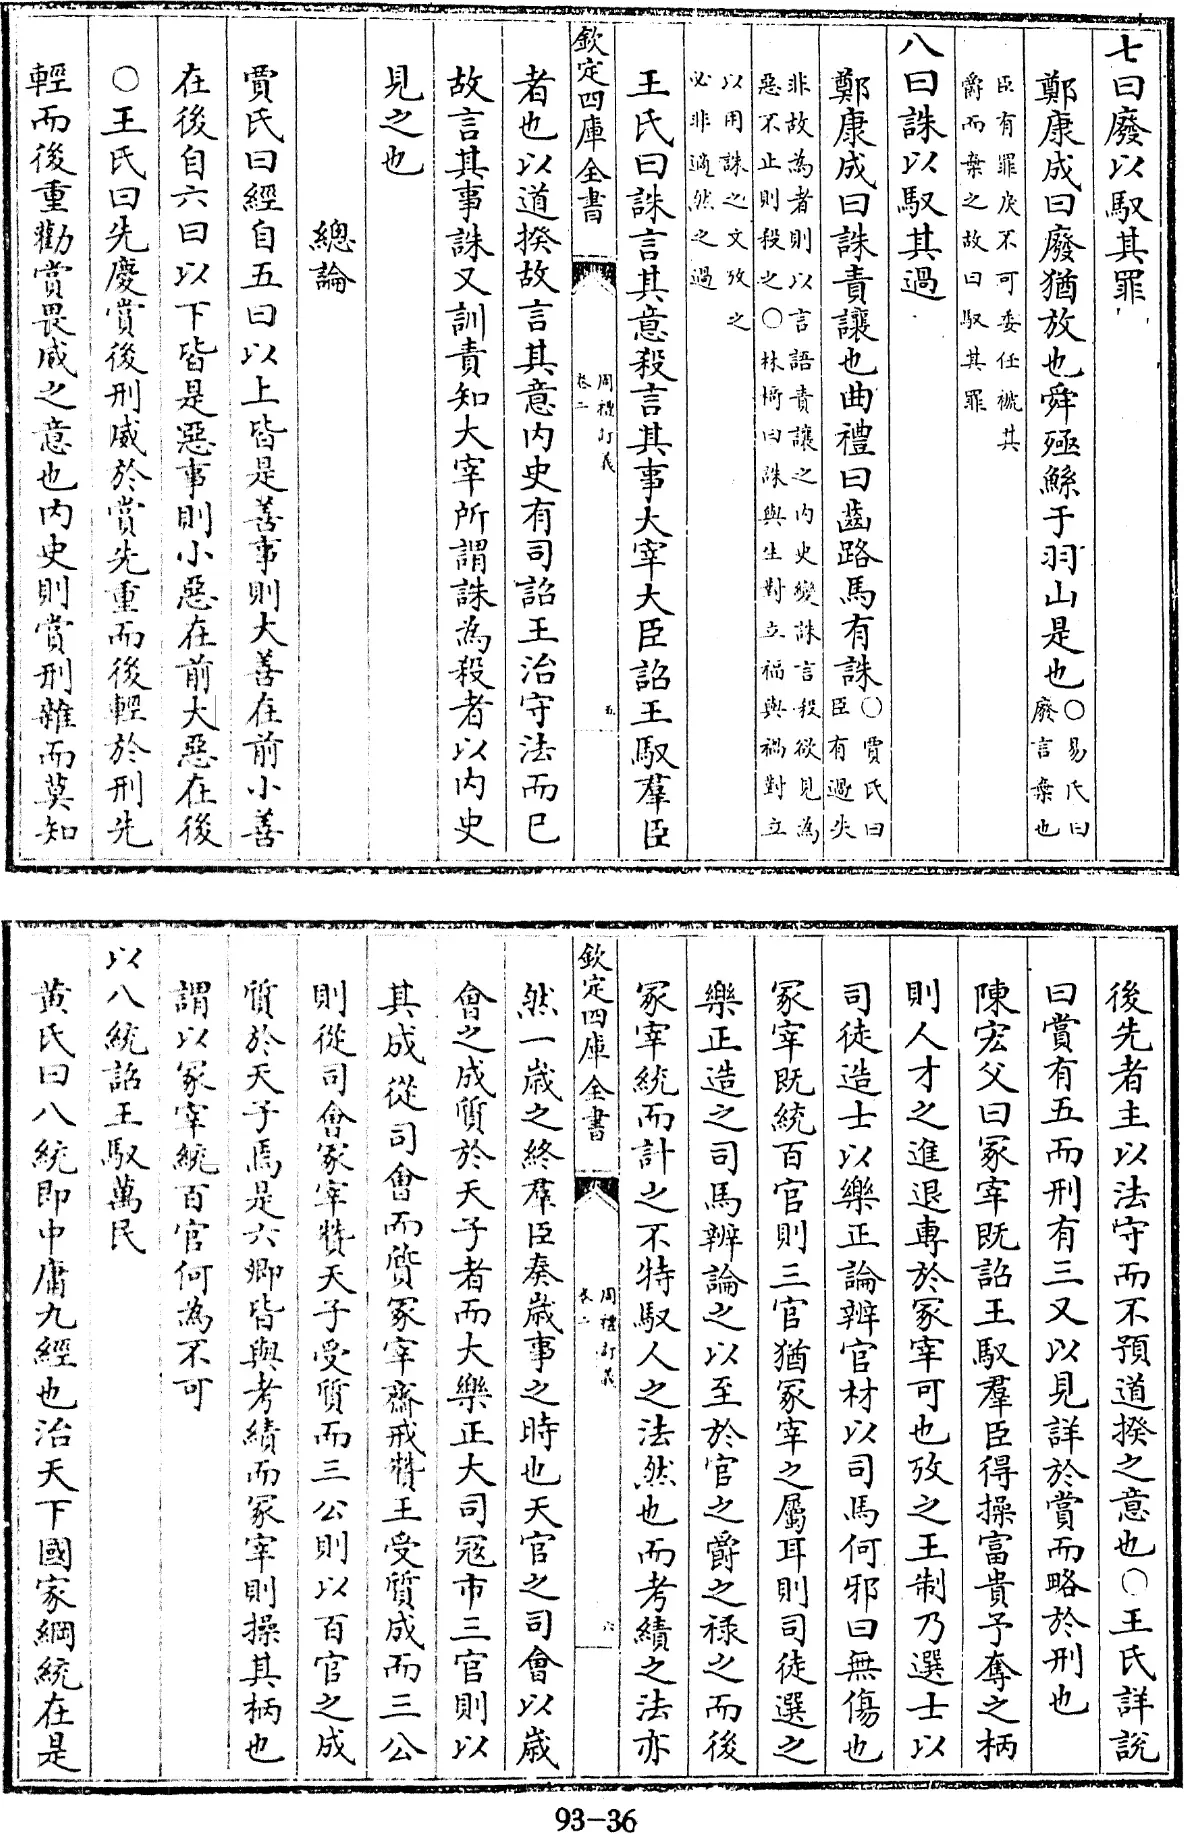 七曰廢以馭其罪
鄭康成曰廢猶放也舜殛鯀于羽山是也○易氏曰
廢言棄也
臣有罪戾不可委任褫其
爵而棄之故曰馭其罪
八曰誅以馭其過
鄭康成曰誅責讓也曲禮曰齒路馬有誅○賈氏曰
臣有過失
非故為者則以言語責讓之内史變誅言殺欲見為
惡不止則殺之○林椅曰誅與生對立福與禍對立
以用誅之文攷之
必非過然之過
王氏曰誅言其意殺言其事大宰大臣詔王馭羣臣
欽定四庫全書
周禮訂義
卷二
五
者也以道揆故言其意内史有司詔王治守法而已
故言其事誅又訓責知大宰所謂誅為殺者以内史
見之也
總論
賈氏曰經自五曰以上皆是善事則大善在前小善
在後自六曰以下皆是惡事則小惡在前大惡在後
○王氏曰先慶賞後刑威於賞先重而後輕於刑先
輕而後重勸賞畏威之意也内史則賞刑雜而莫知
後先者主以法守而不預道揆之意也○王氏詳說
曰賞有五而刑有三又以見詳於賞而略於刑也
陳宏父曰冢宰既詔王馭羣臣得操富貴予奪之柄
則人才之進退專於冢宰可也攷之王制乃選士以
司徒造士以樂正論辨官材以司馬何邪曰無傷也
冢宰既統百官則三官猶冢宰之屬耳則司徒選之
樂正造之司馬辨論之以至於官之爵之祿之而後
冢宰統而計之不特馭人之法然也而考績之法亦
欽定四庫全書
周禮訂義
卷二
六
然一歲之終羣臣奏歲事之時也天官之司會以歲
會之成質於天子者而大樂正大司寇市三官則以
其成從司會而質冢宰齋戒贊王受質成而三公
則從司會冢宰贊天子受質而三公則以百官之成
質於天子焉是六卿皆與考績而冢宰則操其柄也
謂以冢宰統百官何為不可
以八統詔王馭萬民
黃氏曰八統即中庸九經也治天下國家綱統在是
93-36